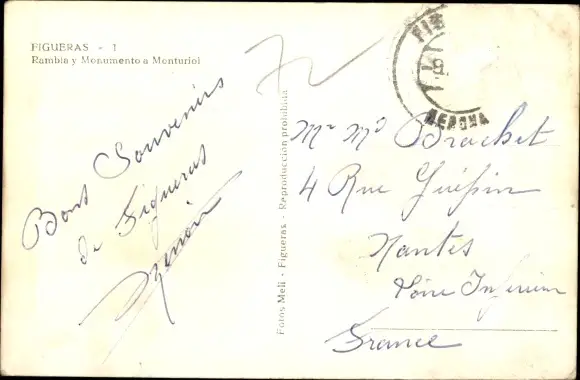 FIGUERAS - 1
Rambla y Monumento a Monturiol
Bons Souvenirs
de Figueras
Fotos Meli - Figueras - Reproducción prohibida
FIG
GERONA
Mr Md Brachet
4 Rue Guépin
Nantes
Loire Inferieure
France